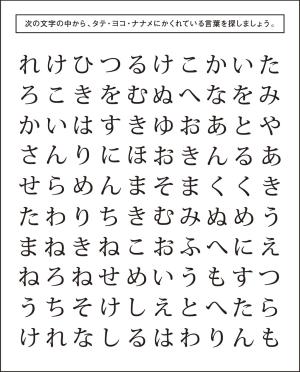 次の文字の中から、タテ・ヨコ・ナナメにかくれている言葉を探しましょう。
れけひつるけこかいた
ろこきをむぬへなをみ
かいはすきゆおあとや
さんりにほおきんるあ
せらめんまそまくくき
たわりちきむみぬめう
まねきねこおふへにえ
ねろねせめいうもすつ
うちそけしえとへたら
けれなしるはわりんも